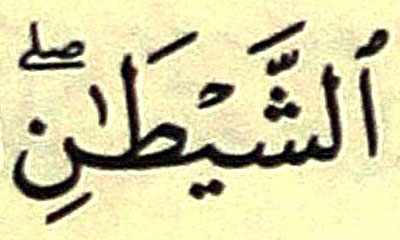 ٱلشَّيْطَـٰنِ ۖ